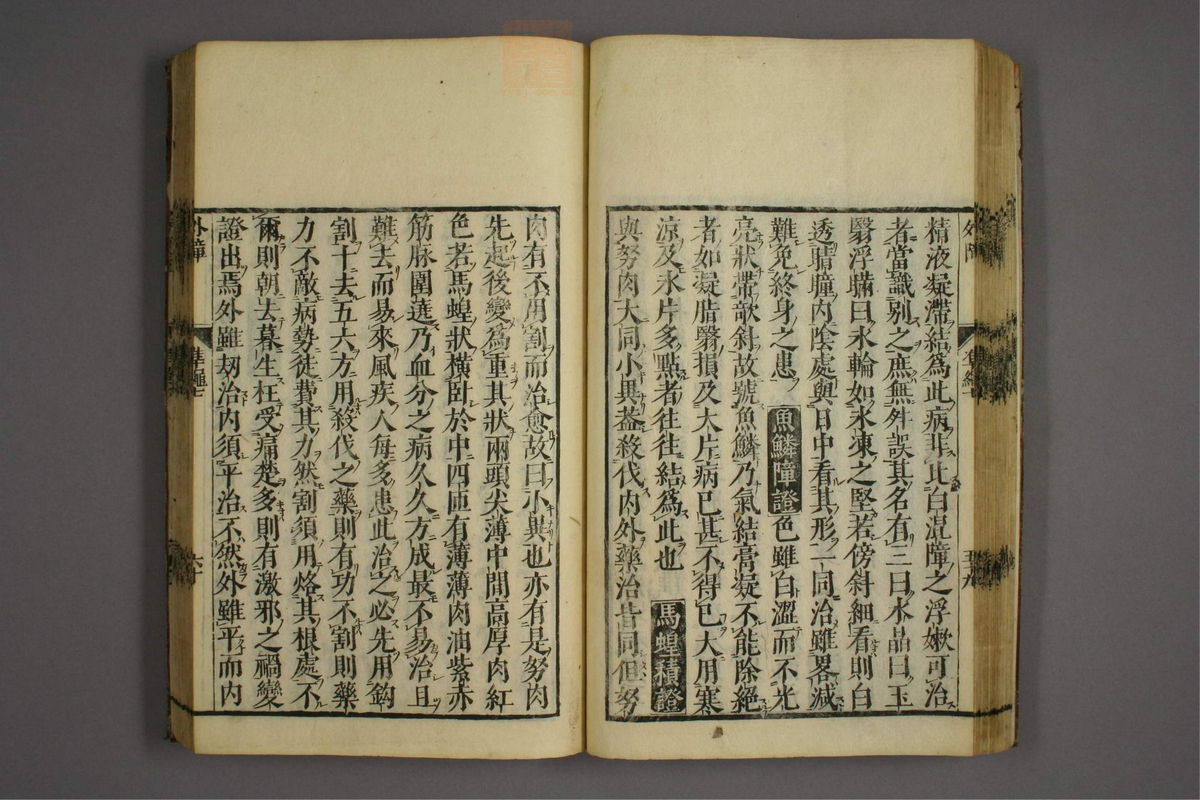 精液凝滯結爲此病非比白混障之浮嫩可治
者當識别之庶無舛誤其名有三曰水晶曰玉
翳浮瞞曰氷輪如氷凍之堅若傍斜細看則白
透睛瞳内陰處與日中看其形二同治雖畧減
難免終身之患 魚鱗障證 色雖白澀而不光
亮狀帶欹斜故號魚鱗乃氣結膏凝不能除絕
者如凝脂翳損及大片病已甚不得已大用寒
涼及氷片多點者往往結爲此也 馬蝗積證
與努肉大同小異葢殺伐内外藥治皆同但努
肉有不用割而治愈故曰小異也亦有是努肉
先起後變爲重其狀兩頭尖薄中間高厚肉紅
色若馬蝗狀橫卧於中四匝有薄薄肉油紫赤
筋脉圍遶乃血分之病久久方成最不易治且
難去而易來風疾人每多患此治之必先用鈎
割十去五六方用殺伐之藥則有功不割則藥
力不敵病勢徒費其力然割須用烙其根處不
爾則朝去暮生枉受痛楚多則有激邪之禍變
證出焉外雖刼治内須平治不然外雖平而内
外障 準繩七 六十